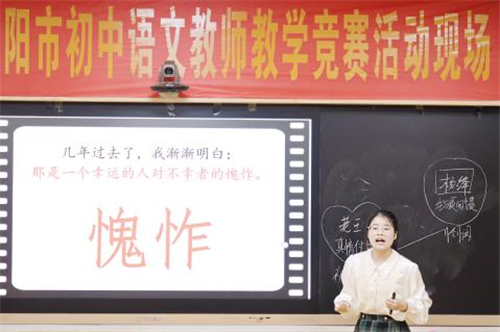 阳市初中语文教师教学竞赛活动现场
几年过去了，我渐渐明白：
那是一个幸运的人对不幸者的愧怍。
愧怍
杨绛
老王
真情付